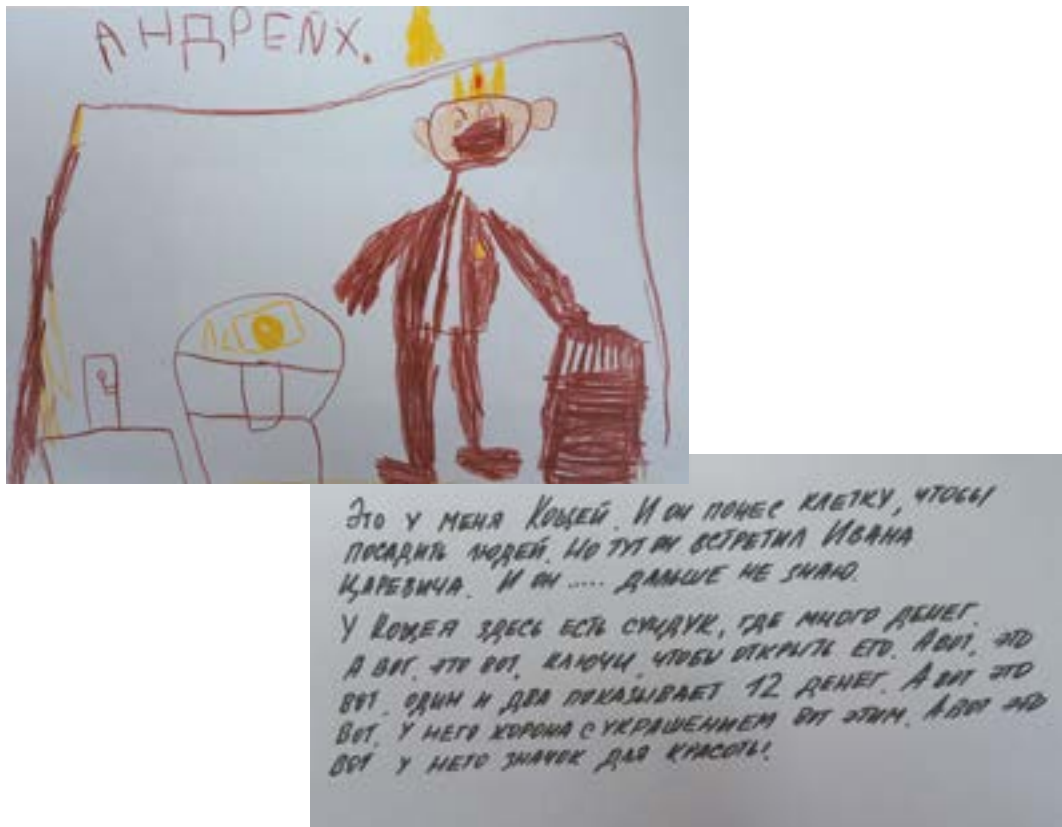 АНДРЕЙ Х.
Это у меня Кощей. И он понес клетку, чтобы
посадить людей. Но тут он встретил Ивана
Царевича. И он ..... дальше не знаю.
У Кощея здесь есть сундук, где много денег.
А вот это вот, ключи, чтобы открыть его. А вот, это
вот, один и два показывает 12 денег. А вот это
вот, у него корона с украшением вот этим. А вот это
вот у него значок для красоты!